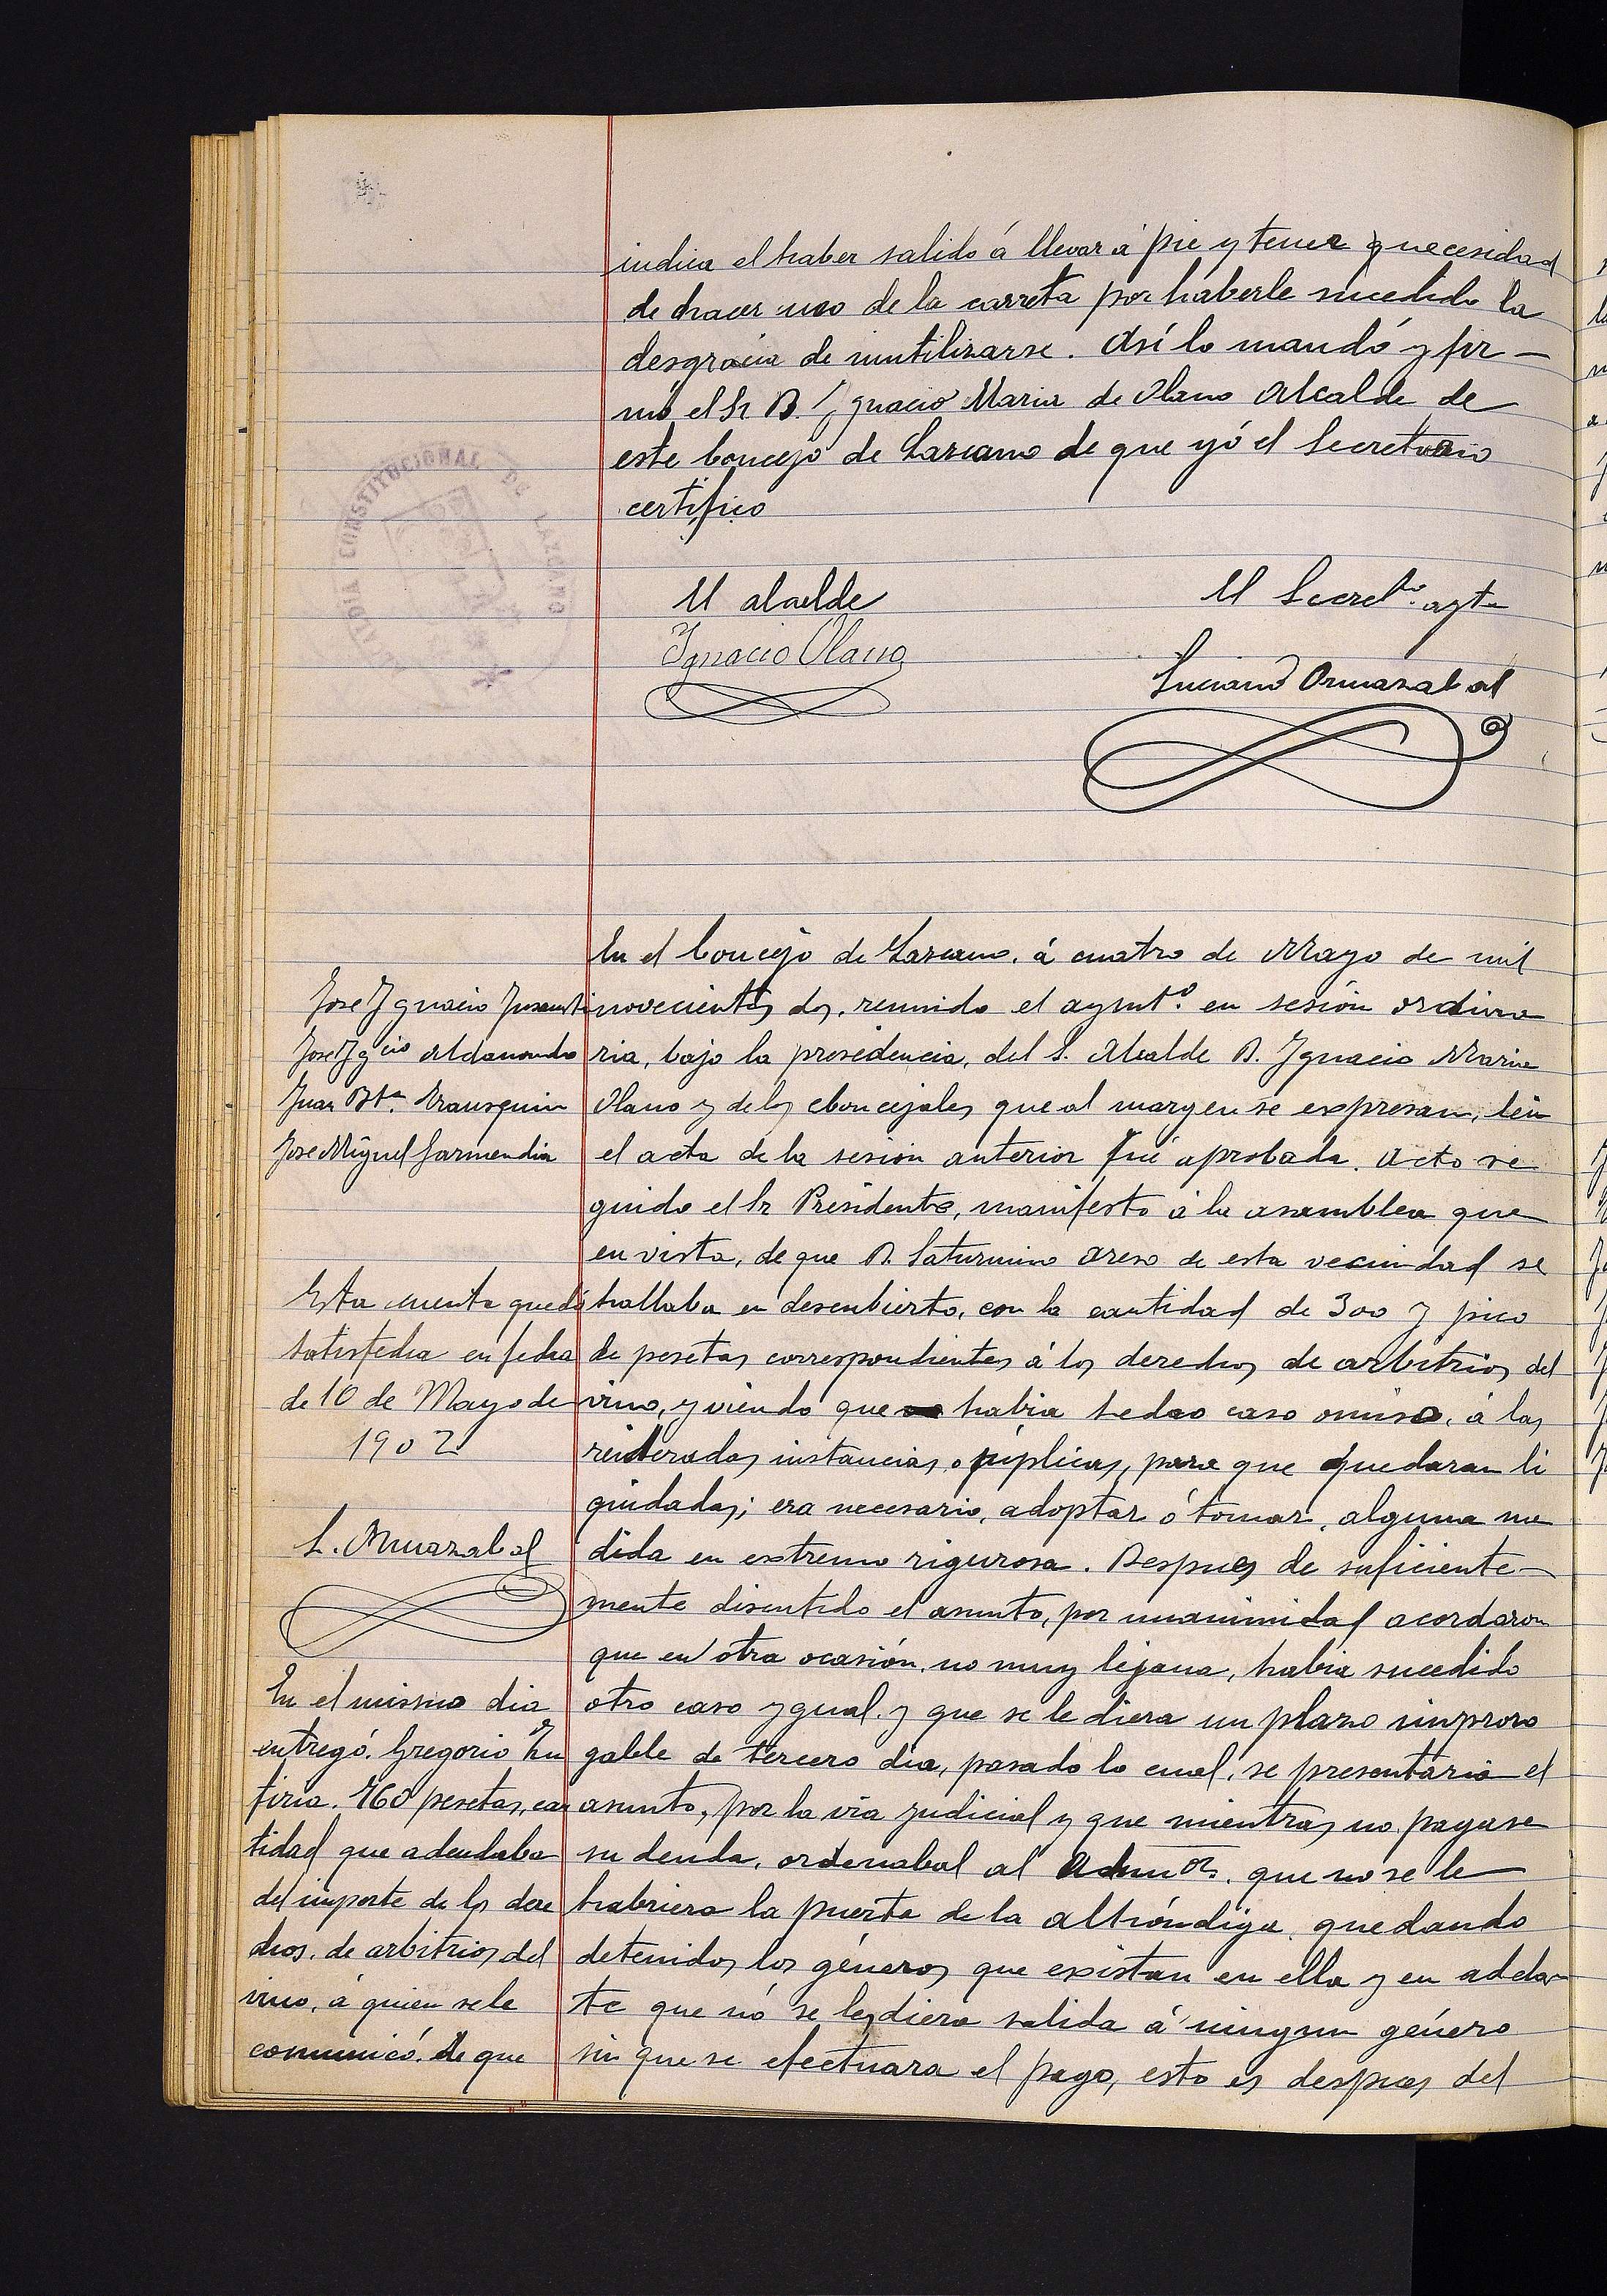 indica el haber salido á llevar á pie y tener necesidad
de hacer uso de la carreta por haberle sucedido la
desgracia de inutilizarse. Así lo mandó y fir-
mó el Sr D. Ignacio Maria de Olano Alcalde de
este Concejo de Lazcano de que yó el Secretario
certifico
ALCALDIA CONSTITUCIONAL DE LAZCANO
El alcalde
El Secretº. ayto
Ignacio Olano
Luciano Ormazabal
En el Concejo de Lazcano, á cuatro de Mayo de mil
novecientos dos, reunido el aymtº. en sesión ordina
ria, bajo la presidencia, del S. Alcalde D. Ignacio Maria
Olano y de los concejales que al margen se expresan, lein
el acta de la sesion anterior fué aprobada. Acto se
guido el Sr Presidente, manifesto á la asamblea que
en vista, de que D. Saturnino Areso de esta vecindad se
hallaba en descubierto, con la cantidad de 300 y pico
de pesetas correspondientes á los derechos de arbitrios del
vino, y viendo que habia hecho caso omiso, á las
reiteradas instancias, o súplicas, para que quedaran li
quidadas; era necesario, adoptar ó tomar, alguna me
dida en extremo rigurosa. Despues de suficiente-
mente discutido el asunto, por unanimidad acordaron
que en otra ocasión, no muy lejana, habia sucedido
otro caso ygual, y que se le diera un plazo inproro
gable de tercero dia, pasado lo cual, se presentaria el
asunto, por la via judicial y que mientras no pagase
su deuda, ordenabal al Admor. que no se le
habriera la puerta de la alhóndiga, quedando
detenidos los géneros que existan en ella y en adelan
te que nó se les diera salida á ningun género
sin que se efectuara el pago, esto es despues del
José Ignacio Jusanti
José Ygcio Aldanondo
Juan Bta. Urausquin
José Miguel Garmendia
Esta cuenta quedó
satisfecha en fecha
de 10 de Mayo de
1902
L. Ormazabal
En el mismo dia
entregó. Gregorio Zu
firia. 160 pesetas, can
tidad que adeudaba
del importe de los dere
chos. de arbitrios del
vino, á quien se le
comunicó. de que